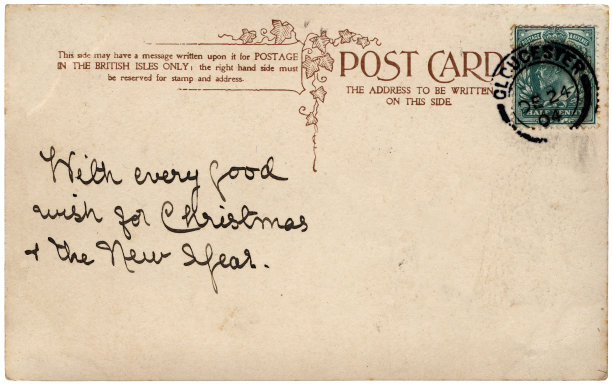 This side may have a message written upon it for POSTAGE
IN THE BRITISH ISLES ONLY: the right hand side must
be reserved for stamp and address.
POST CARD
THE ADDRESS TO BE WRITTEN
ON THIS SIDE.
GLOUCESTER
DE 24
04
HALF PENNY
With every good
wish for Christmas
& the New Year.